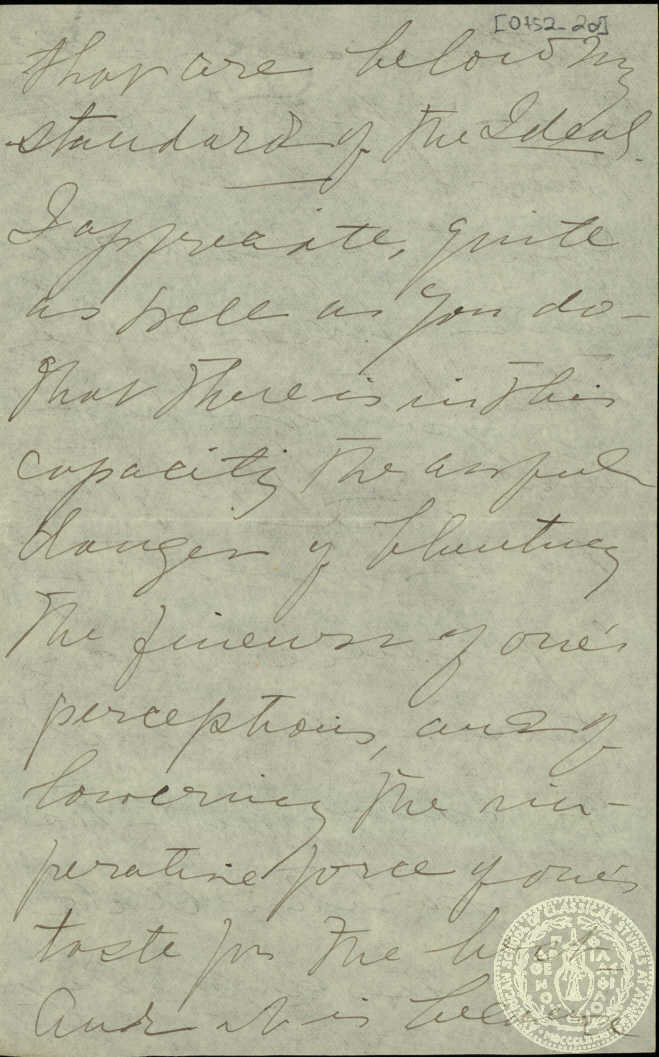 [0752-20]
that are below my
standard of the Ideal.
I appreciate, quite
as well as you do -
that there is in this
capacity the awful
danger of blunting
the fineness of one's
perceptions, and of
lowering the im-
perative force of one's
taste for the best.
And it is because
AMERICAN SCHOOL OF CLASSICAL STUDIES AT